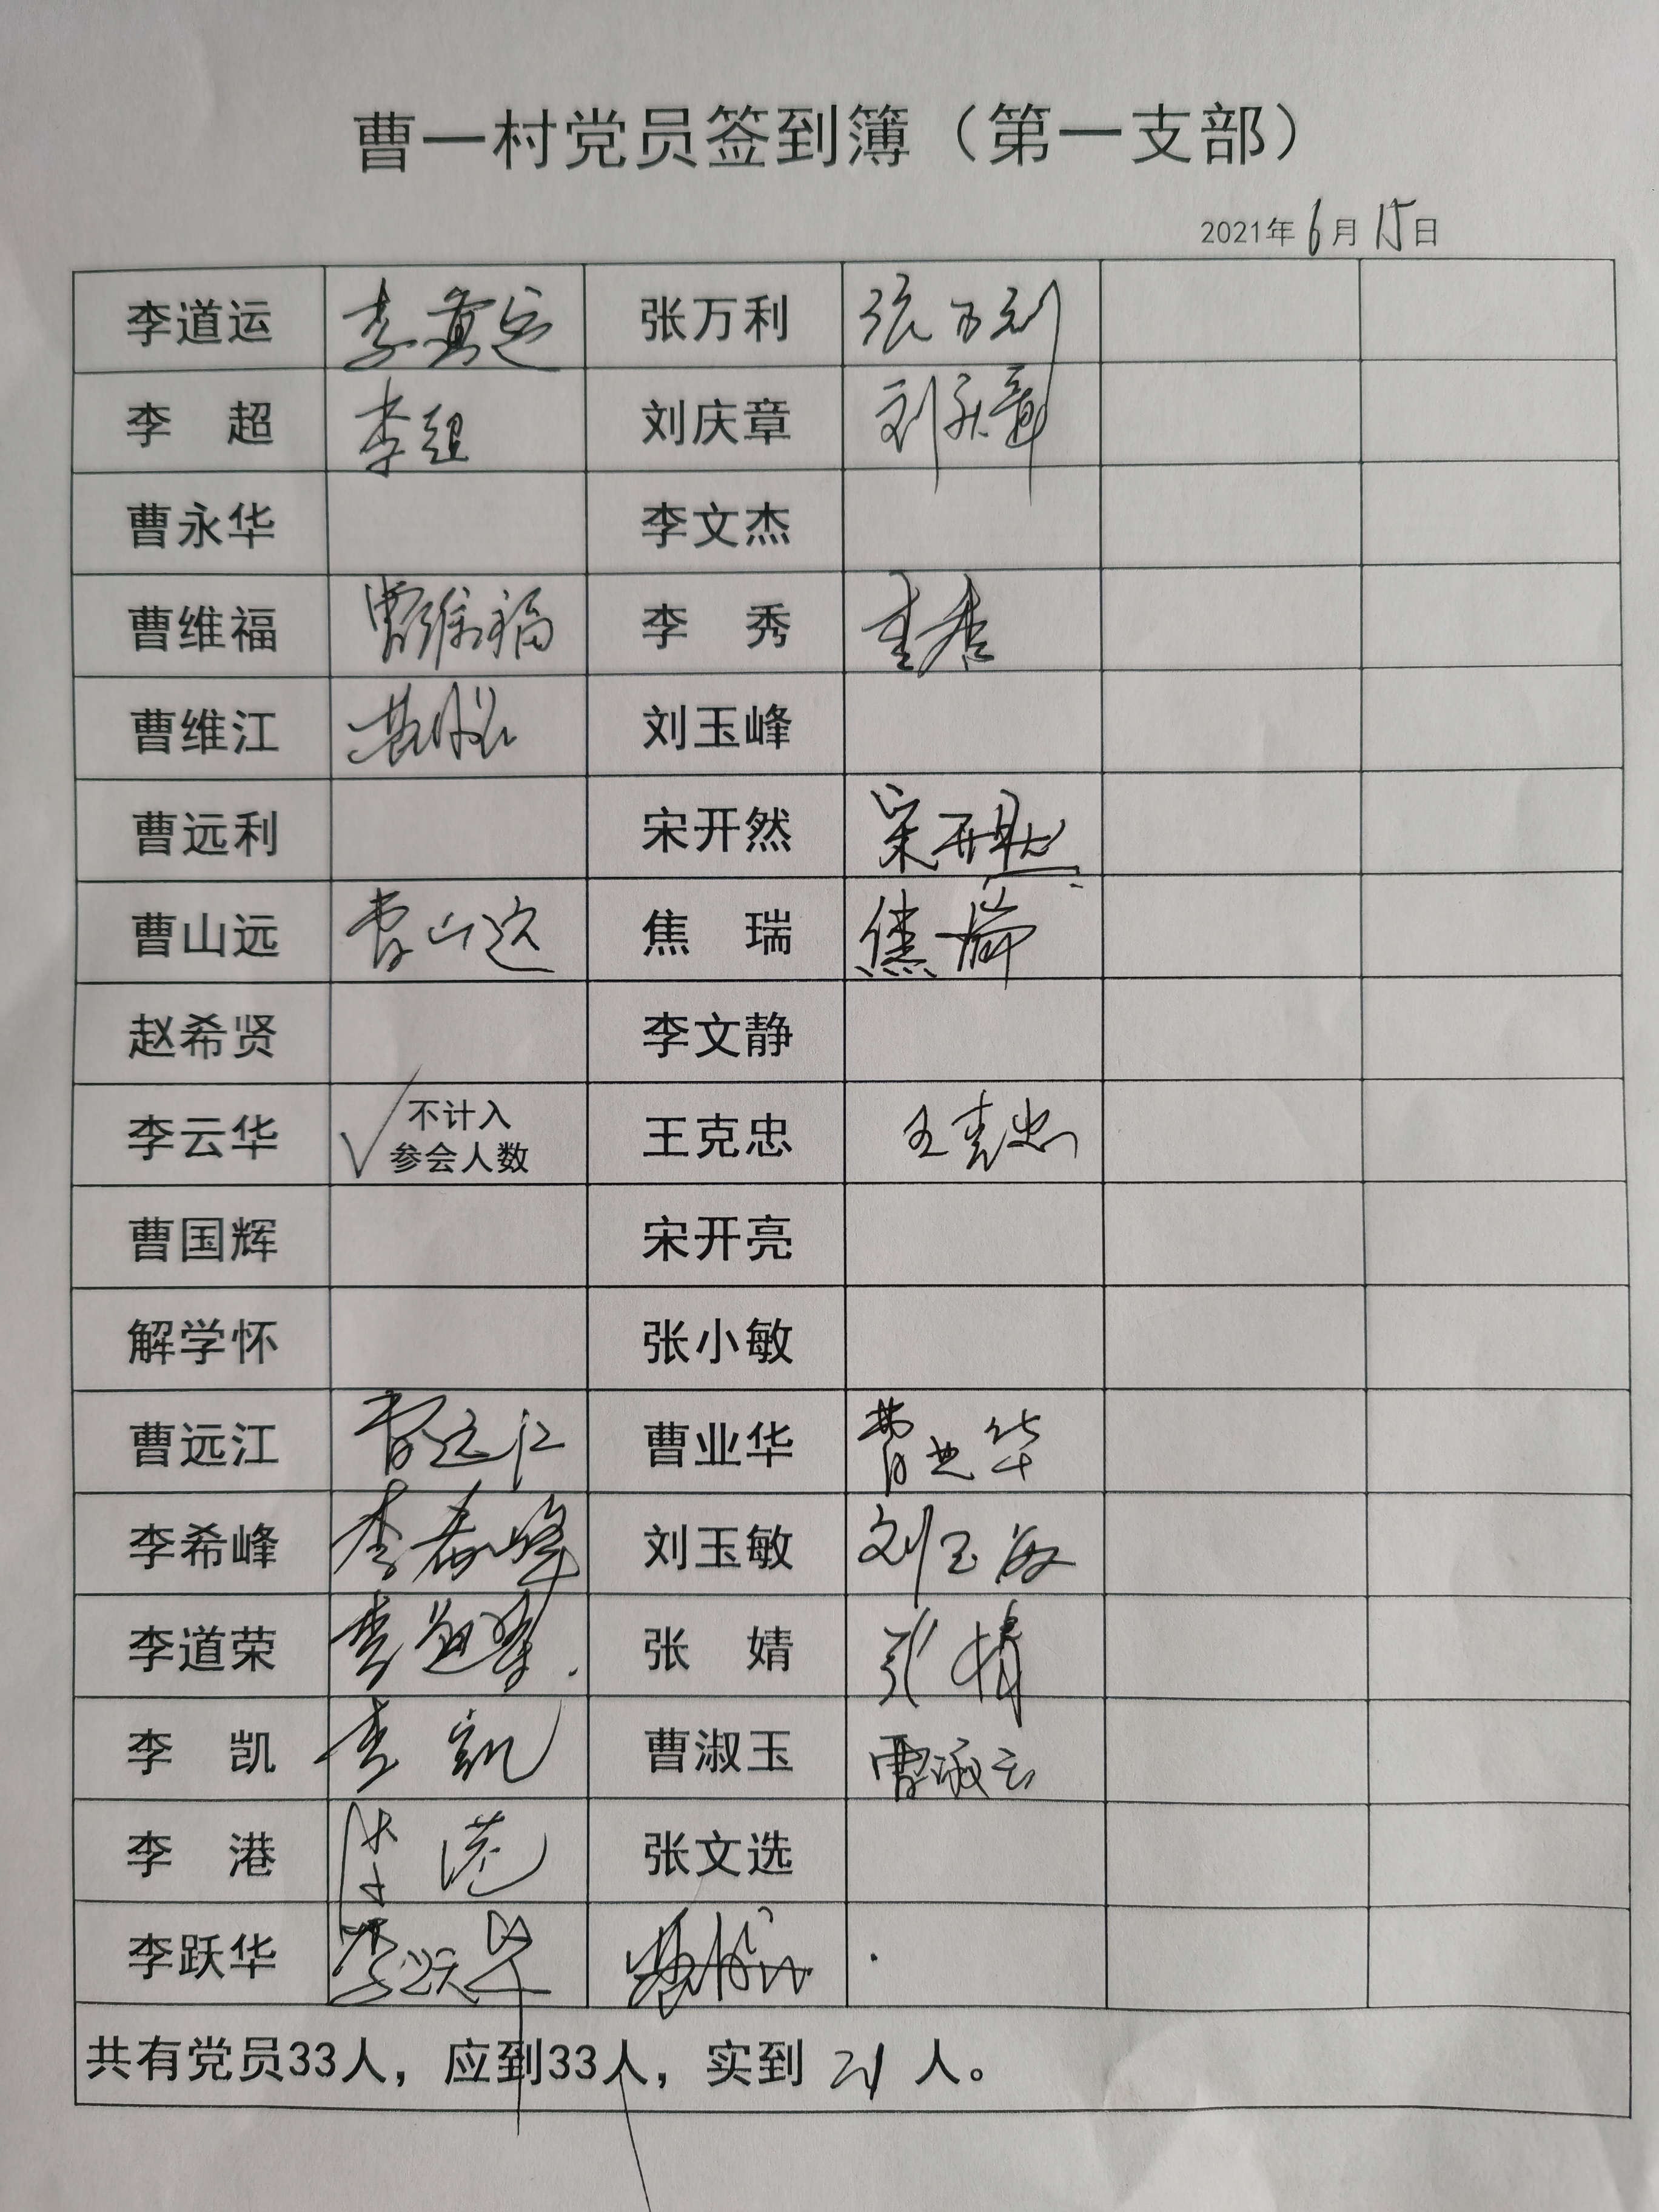 曹一村党员签到簿（第一支部）
2021年6月15日
李道运 李道运 张万利 张万利
李 超 李超 刘庆章 刘庆章
曹永华 李文杰
曹维福 曹维福 李 秀 李秀
曹维江 刘玉峰
曹远利 宋开然 宋开然
曹山远 曹山远 焦 瑞 焦瑞
赵希贤 李文静
李云华 √ 不计入 王克忠 王克忠
参会人数
曹国辉 宋开亮
解学怀 张小敏
曹远江 曹远江 曹业华 曹业华
李希峰 李希峰 刘玉敏 刘玉敏
李道荣 李道荣 张 婧 张婧
李 凯 李凯 曹淑玉 曹淑玉
李 港 李港 张文选
李跃华 李跃华
共有党员33人，应到33人，实到 21 人。